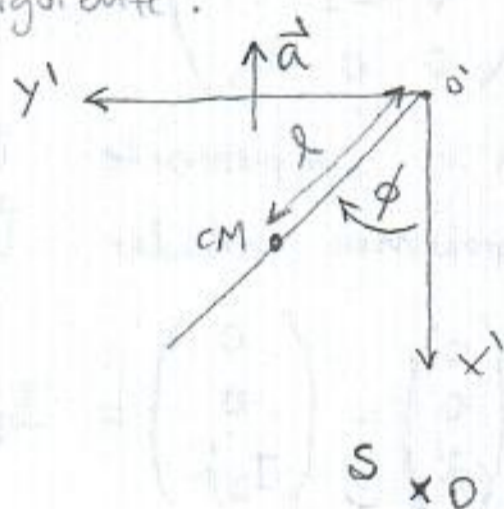 a⃗
y'
o'
l
ϕ
CM
x'
S
× O